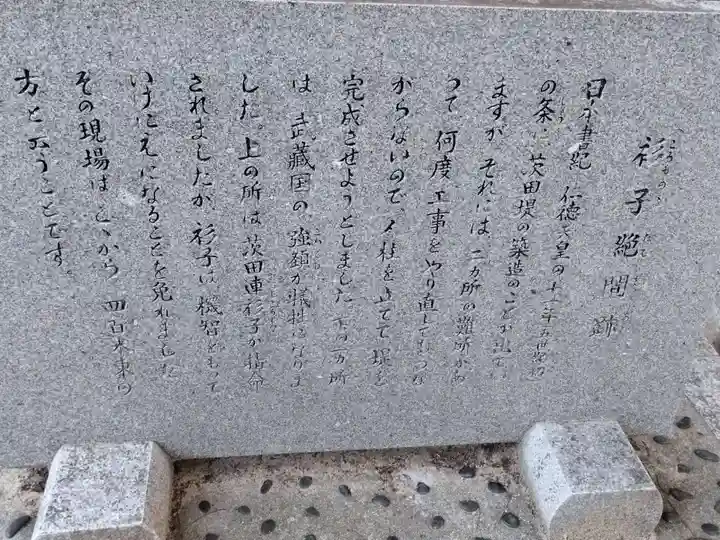 衫子絶間跡
日本書紀 仁徳天皇の十一年(五世紀初)
の条に、茨田堤の築造のことが出てい
ますが、それには、二カ所の難所があ
って 何度工事をやり直してもつな
からないので、人柱を立てて堤を
完成させようとしました。下の一カ所
は、武蔵国の、強頸が犠牲になりま
した。上の所は茨田連衫子が指命
されましたが、衫子は機智をもって
いけにえになることを免れました
その現場はここから 四百米東の
方と云うことです。